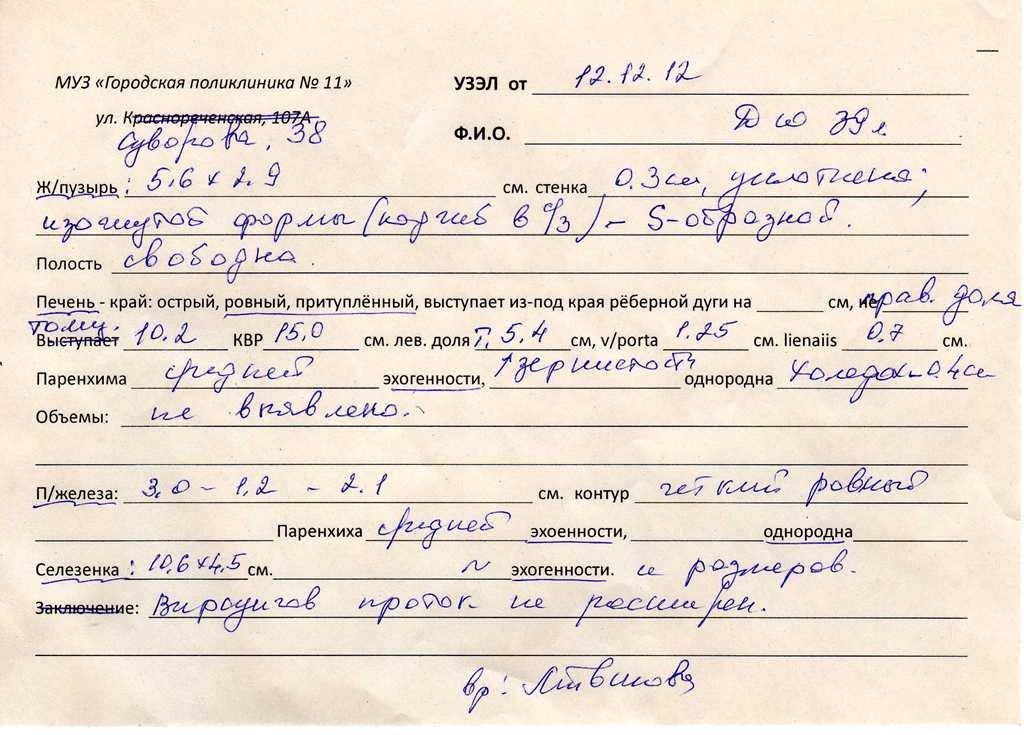 МУЗ «Городская поликлиника № 11» УЗЭЛ от 12.12.12
ул. Краснореченская, 107А
Суворова, 38 Ф.И.О. 39 л
Ж/пузырь : 5,6 х 2.9 см. стенка 0.3см, уплотнена;
изогнутой формы (перегиб в с/з) – S-образной.
Полость свободна.
Печень - край: острый, ровный, притуплённый, выступает из-под края рёберной дуги на см, не прав. доля
Выступает 10.2 КВР 15,0 см. лев. доля 5,4 см, v/porta 1.25 см. lienaiis 0.7 см.
Паренхима средней эхогенности, ↑зернистость однородна Холедох – 0.4см
Объемы: не выявлено.
П/железа: 3,0 – 1,2 – 2.1 см. контур четкий ровный
Паренхиха средней эхоенности, однородна
Селезенка : 10,6х4,5 см. ~ эхогенности. и размеров.
Заключение: Вирсунгов проток не расширен.
вр: